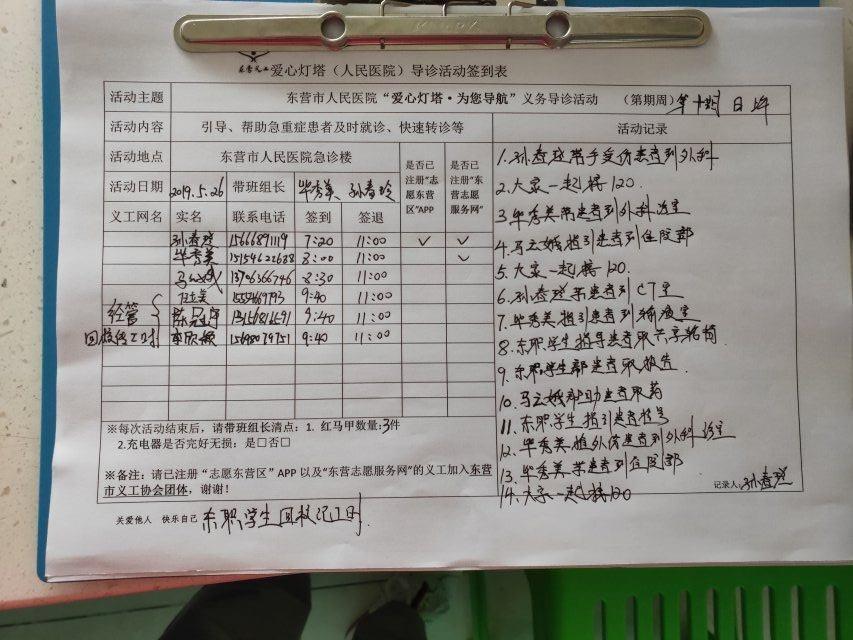 爱心灯塔（人民医院）导诊活动签到表
活动主题 东营市人民医院“爱心灯塔·为您导航”义务导诊活动 （第期周） 第十期 日上午
活动内容 引导、帮助急重症患者及时就诊、快速转诊等 活动记录
活动地点 东营市人民医院急诊楼 是否已注册“志愿东营区”APP 是否已注册“东营志愿服务网”
活动日期 2019.5.26 带班组长 毕秀美 孙春玲
义工网名 实名 联系电话 签到 签退
孙春玲 15666891119 7:20 11:00 ✓ ✓
毕秀美 15154622688 8:00 11:00 ✓
马云娥 13706366746 8:30 11:00
9:40 11:00
经管 9:40 11:00
回校记工时 9:40 11:00
※每次活动结束后，请带班组长清点：1. 红马甲数量:3件
2.充电器是否完好无损：是□否□
※备注：请已注册“志愿东营区”APP 以及“东营志愿服务网”的义工加入东营
市义工协会团体，谢谢！
关爱他人 快乐自己 东职学生回校记工时
1. 孙春玲带手受伤患者到外科
2. 大家一起接120.
3. 毕秀美带患者到外科诊室
4. 马云娥指引患者到住院部
5. 大家一起接120.
6. 孙春玲带患者到CT室
7. 毕秀美指引患者到输液室
8. 东职学生指导患者取六字
9. 东职学生帮患者取报告
10. 马云娥帮助患者取药
11. 东职学生指引患者挂号
12. 毕秀美领外伤患者到外科诊室
13. 毕秀美带患者到住院部
14. 大家一起接120
记录人: 孙春玲